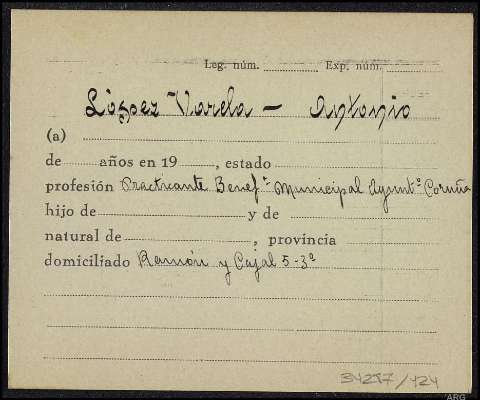 Leg. núm. Exp. núm.
López Varela - Antonio
(a)
de años en 19 , estado
profesión Practicante Benef.ª Municipal Ayunt.º Coruña
hijo de y de
natural de , provincia
domiciliado Ramón y Cajal 5-3º
34297/424
ARG